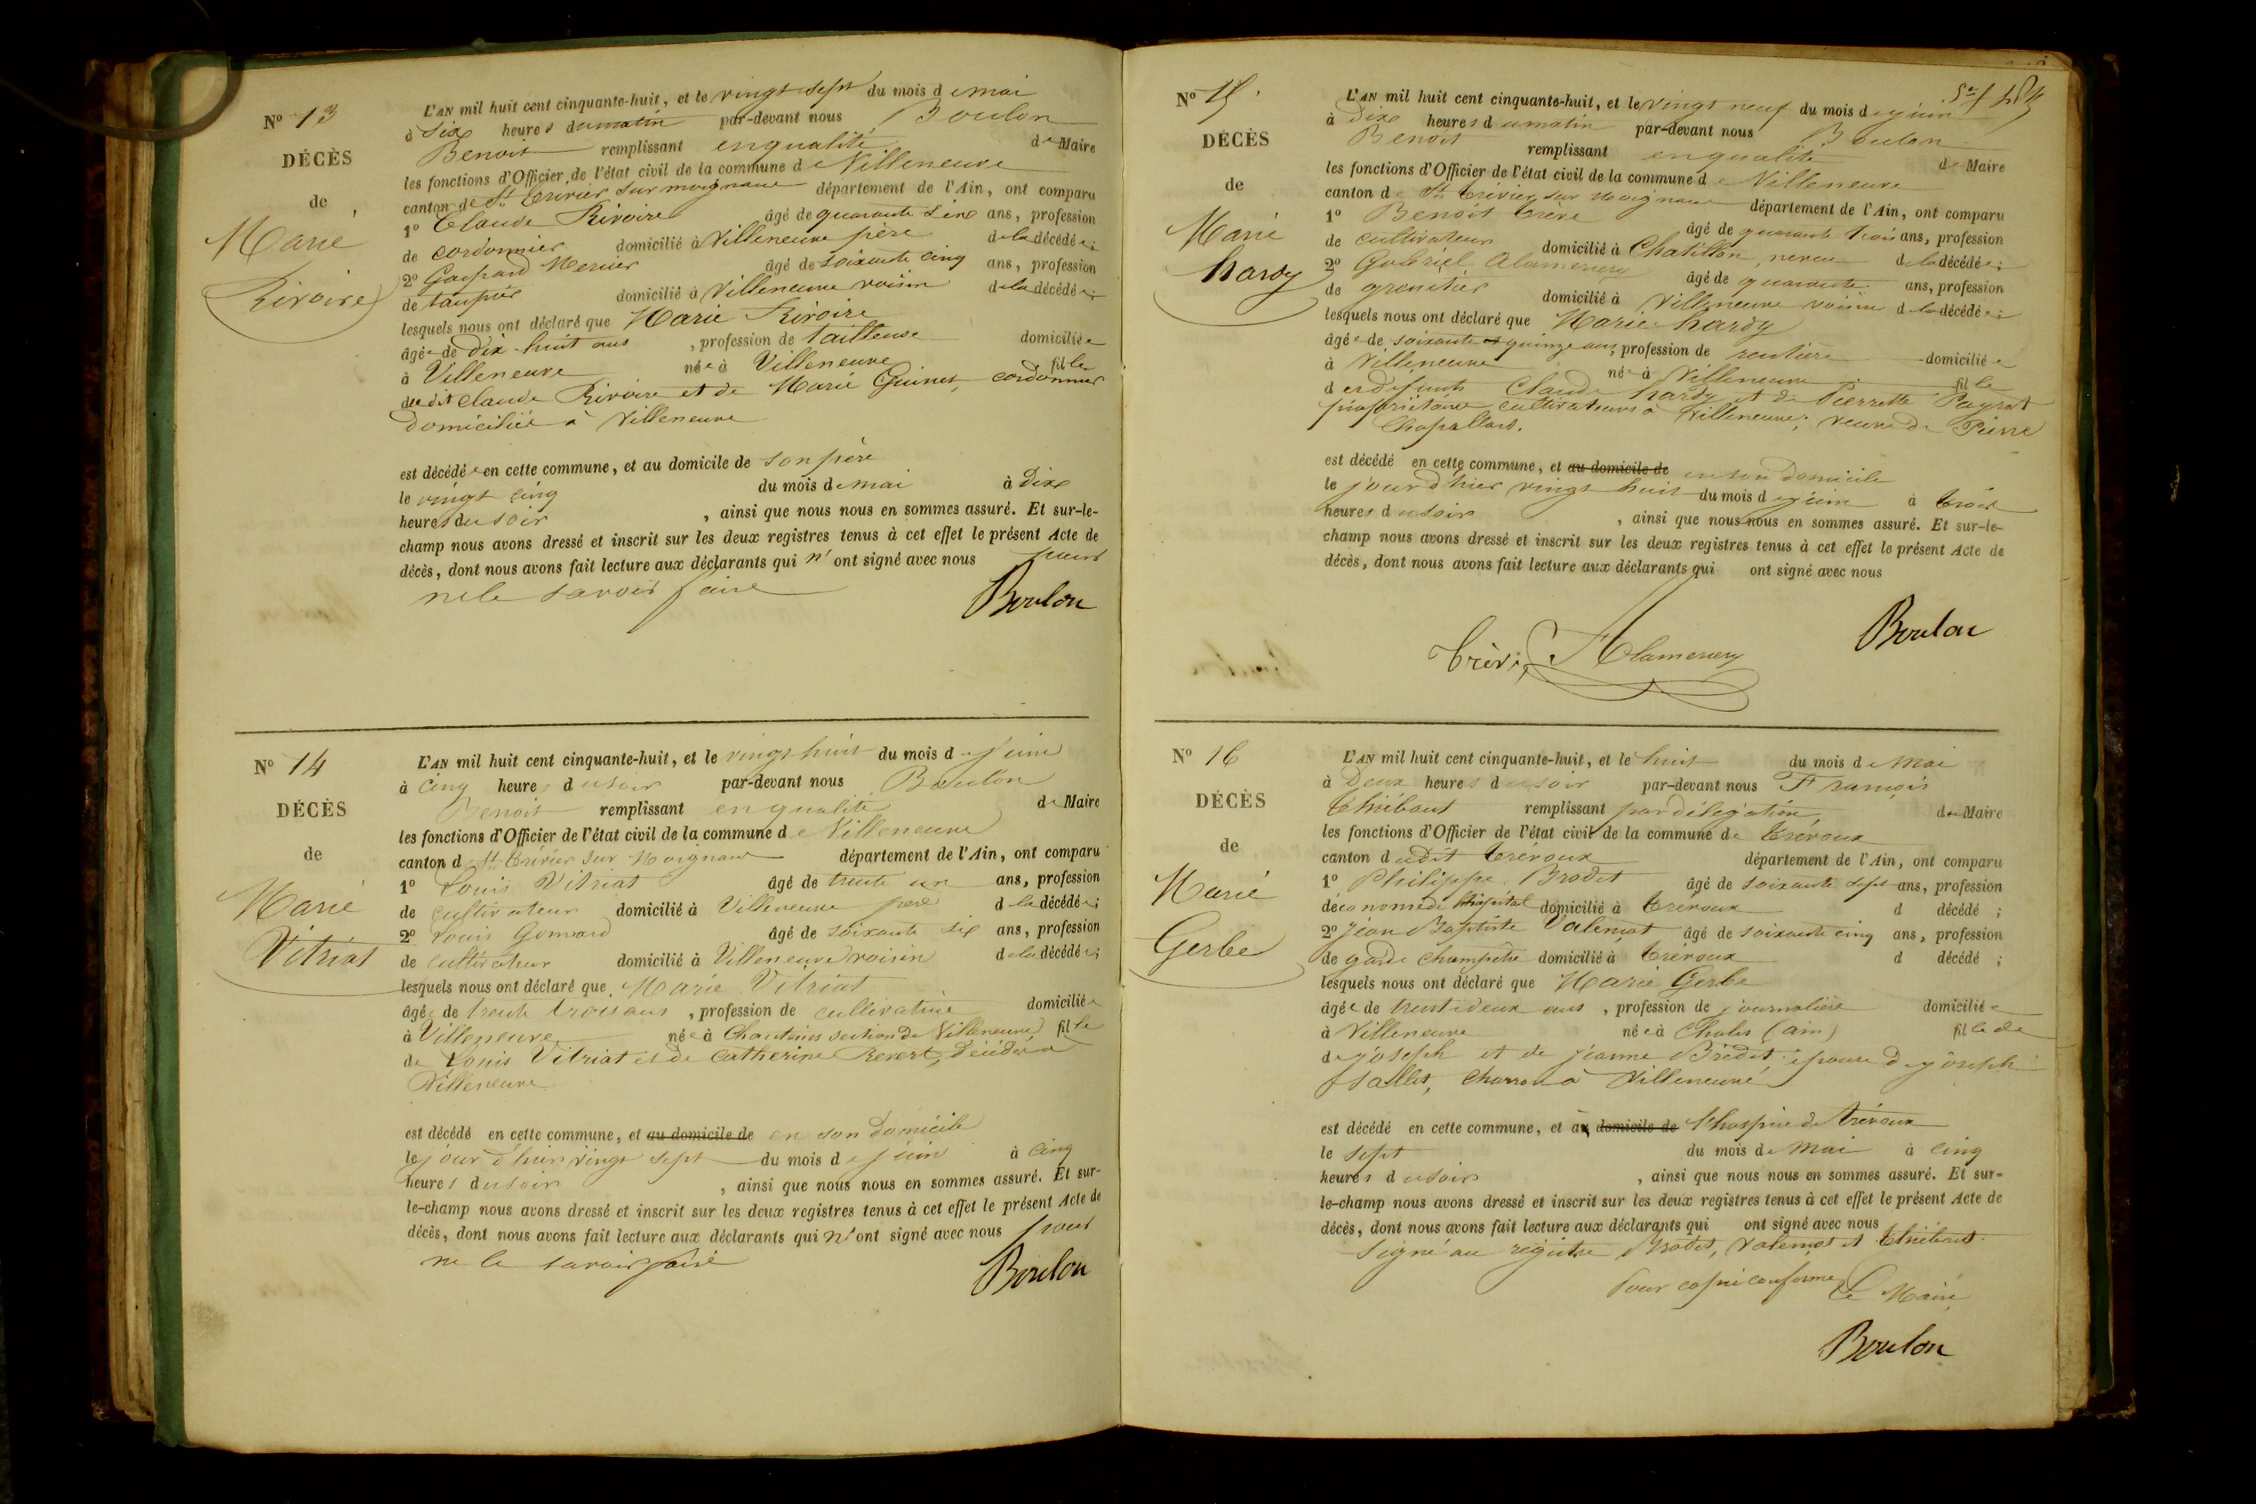 Nº 13
DÉCÈS
de
Marie
Rivoire
L'AN mil huit cent cinquante-huit, et le vingt sept du mois de mai
à six heures du matin par-devant nous Boulon
Benoit remplissant en qualité de Maire
les fonctions d'Officier de l'état civil de la commune de Villeneuve
canton de St Trivier sur moignans département de l'Ain, ont comparu
1º Claude Rivoire âgé de quarante six ans, profession
de cordonnier domicilié à Villeneuve père de la décédée;
2º Gaspard Mercier âgé de soixante cinq ans, profession
de taupier domicilié à Villeneuve voisin de la décédée;
lesquels nous ont déclaré que Marie Rivoire
âgée de dix-huit ans, profession de tailleuse domiciliée
à Villeneuve née à Villeneuve fille
du dit Claude Rivoire et de Marie Guinet, cordonnier
domicilié à Villeneuve
est décédée en cette commune, et au domicile de son père
le vingt cinq du mois de mai à dix
heures du soir, ainsi que nous nous en sommes assuré. Et sur-le-
champ nous avons dressé et inscrit sur les deux registres tenus à cet effet le présent Acte de
décès, dont nous avons fait lecture aux déclarants qui n'ont signé avec nous pour
ne le savoir faire
Boulon
Nº 14
DÉCÈS
de
Marie
Vitriat
L'AN mil huit cent cinquante-huit, et le vingt huit du mois de juin
à cinq heures du soir par-devant nous Boulon
Benoit remplissant en qualité de Maire
les fonctions d'Officier de l'état civil de la commune de Villeneuve
canton de St Trivier sur Moignans département de l'Ain, ont comparu
1º Louis Vitriat âgé de trente un ans, profession
de cultivateur domicilié à Villeneuve de la décédée;
2º Louis Gomard âgé de soixante six ans, profession
de cultivateur domicilié à Villeneuve voisin de la décédée;
lesquels nous ont déclaré que Marie Vitriat
âgée de trente trois ans, profession de cultivatrice domiciliée
à Villeneuve née à section de Villeneuve fille
de Louis Vitriat et de Catherine Revert, décédés à
Villeneuve
est décédé en cette commune, et au domicile de en son domicile
le jour d'hier vingt sept du mois de juin à cinq
heures du soir, ainsi que nous nous en sommes assuré. Et sur-
le-champ nous avons dressé et inscrit sur les deux registres tenus à cet effet le présent Acte de
décès, dont nous avons fait lecture aux déclarants qui n'ont signé avec nous pour
ne le savoir faire
Boulon
Nº 15
DÉCÈS
de
Marie
hardy
L'AN mil huit cent cinquante-huit, et le vingt neuf du mois de juin
à dix heures du matin par-devant nous Boulon
Benoit remplissant en qualité de Maire
les fonctions d'Officier de l'état civil de la commune de Villeneuve
canton de St Trivier sur Moignans département de l'Ain, ont comparu
1º Benoit Crève âgé de quarante trois ans, profession
de cultivateur domicilié à Chatillon, neveu de la décédée;
2º Gabriel Alamercery âgé de quarante ans, profession
de grenetier domicilié à Villeneuve voisin de la décédée;
lesquels nous ont déclaré que Marie hardy
âgée de soixante et quinze ans, profession de rentière domiciliée
à Villeneuve née à Villeneuve fille
des défunts Claude hardy et de Pierrette Peyrat
propriétaires cultivateurs à Villeneuve; veuve de Pierre
Chapallard.
est décédé en cette commune, et au domicile de en son domicile
le jour d'hier vingt huit du mois de juin à trois
heures du soir, ainsi que nous nous en sommes assuré. Et sur-le-
champ nous avons dressé et inscrit sur les deux registres tenus à cet effet le présent Acte de
décès, dont nous avons fait lecture aux déclarants qui ont signé avec nous
Boulon
Nº 16
DÉCÈS
de
Marie
Gerbe
L'AN mil huit cent cinquante-huit, et le huit du mois de Mai
à Deux heures du soir par-devant nous François
Thiébaut remplissant par délégation du Maire
les fonctions d'Officier de l'état civil de la commune de Trévoux
canton dudit Trévoux département de l'Ain, ont comparu
1º Philippe Brodet âgé de soixante sept ans, profession
d'économe de l'hôpital domicilié à Trévoux d décédé ;
2º Jean Baptiste Valemot âgé de soixante cinq ans, profession
de garde champêtre domicilié à Trévoux d décédé ;
lesquels nous ont déclaré que Marie Gerbe
âgée de trente deux ans, profession de journalière domiciliée
à Villeneuve née à Chales (ain) fille de
de joseph et de jeanne Bredet, épouse de joseph
Sallet, charron à Villeneuve
est décédé en cette commune, et à domicile de l'hospice de Trévoux
le sept du mois de Mai à cinq
heures du soir, ainsi que nous nous en sommes assuré. Et sur-
le-champ nous avons dressé et inscrit sur les deux registres tenus à cet effet le présent Acte de
décès, dont nous avons fait lecture aux déclarants qui ont signé avec nous
Signé au registre Brodet, Valemot et Thiébaut
Pour copie conforme Le Maire
Boulon